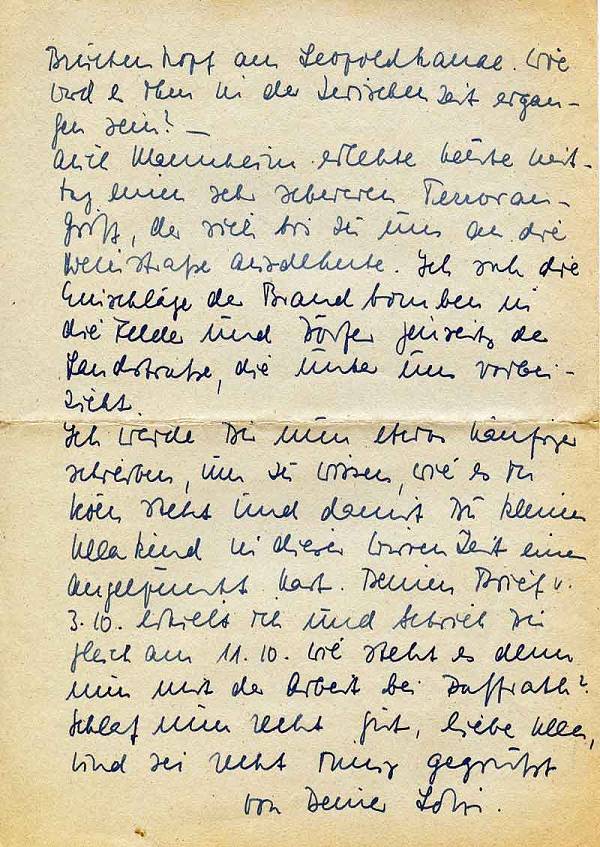 Brückenkopf am Leopoldkanal. Wie
wird es ihm in der zwischenzeit ergan-
gen sein? —
Auch Mannheim erlebte heute mit-
tag einen sehr schweren Terroran-
griff, der sich bis zu uns an die
Weinstraße ausdehnte. Ich sah die
Einschläge der Brandbomben in
die Felder und Dörfer jenseits der
Landstraße, die unter uns vorbei-
zieht.
Ich werde Dir nun etwas häufiger
schreiben, um zu wissen, wie es in
Köln steht und damit Du kleines
Ulla kind in dieser wirren Zeit einen
Angelpunkt hast. Deinen Brief v.
3.10. erhielt ich und schrieb Dir
gleich am 11.10. Wie steht es denn
nun mit der Arbeit bei
Schlaf nun recht gut, liebe Ulla,
und sei recht innig gegrüßt
von Deiner